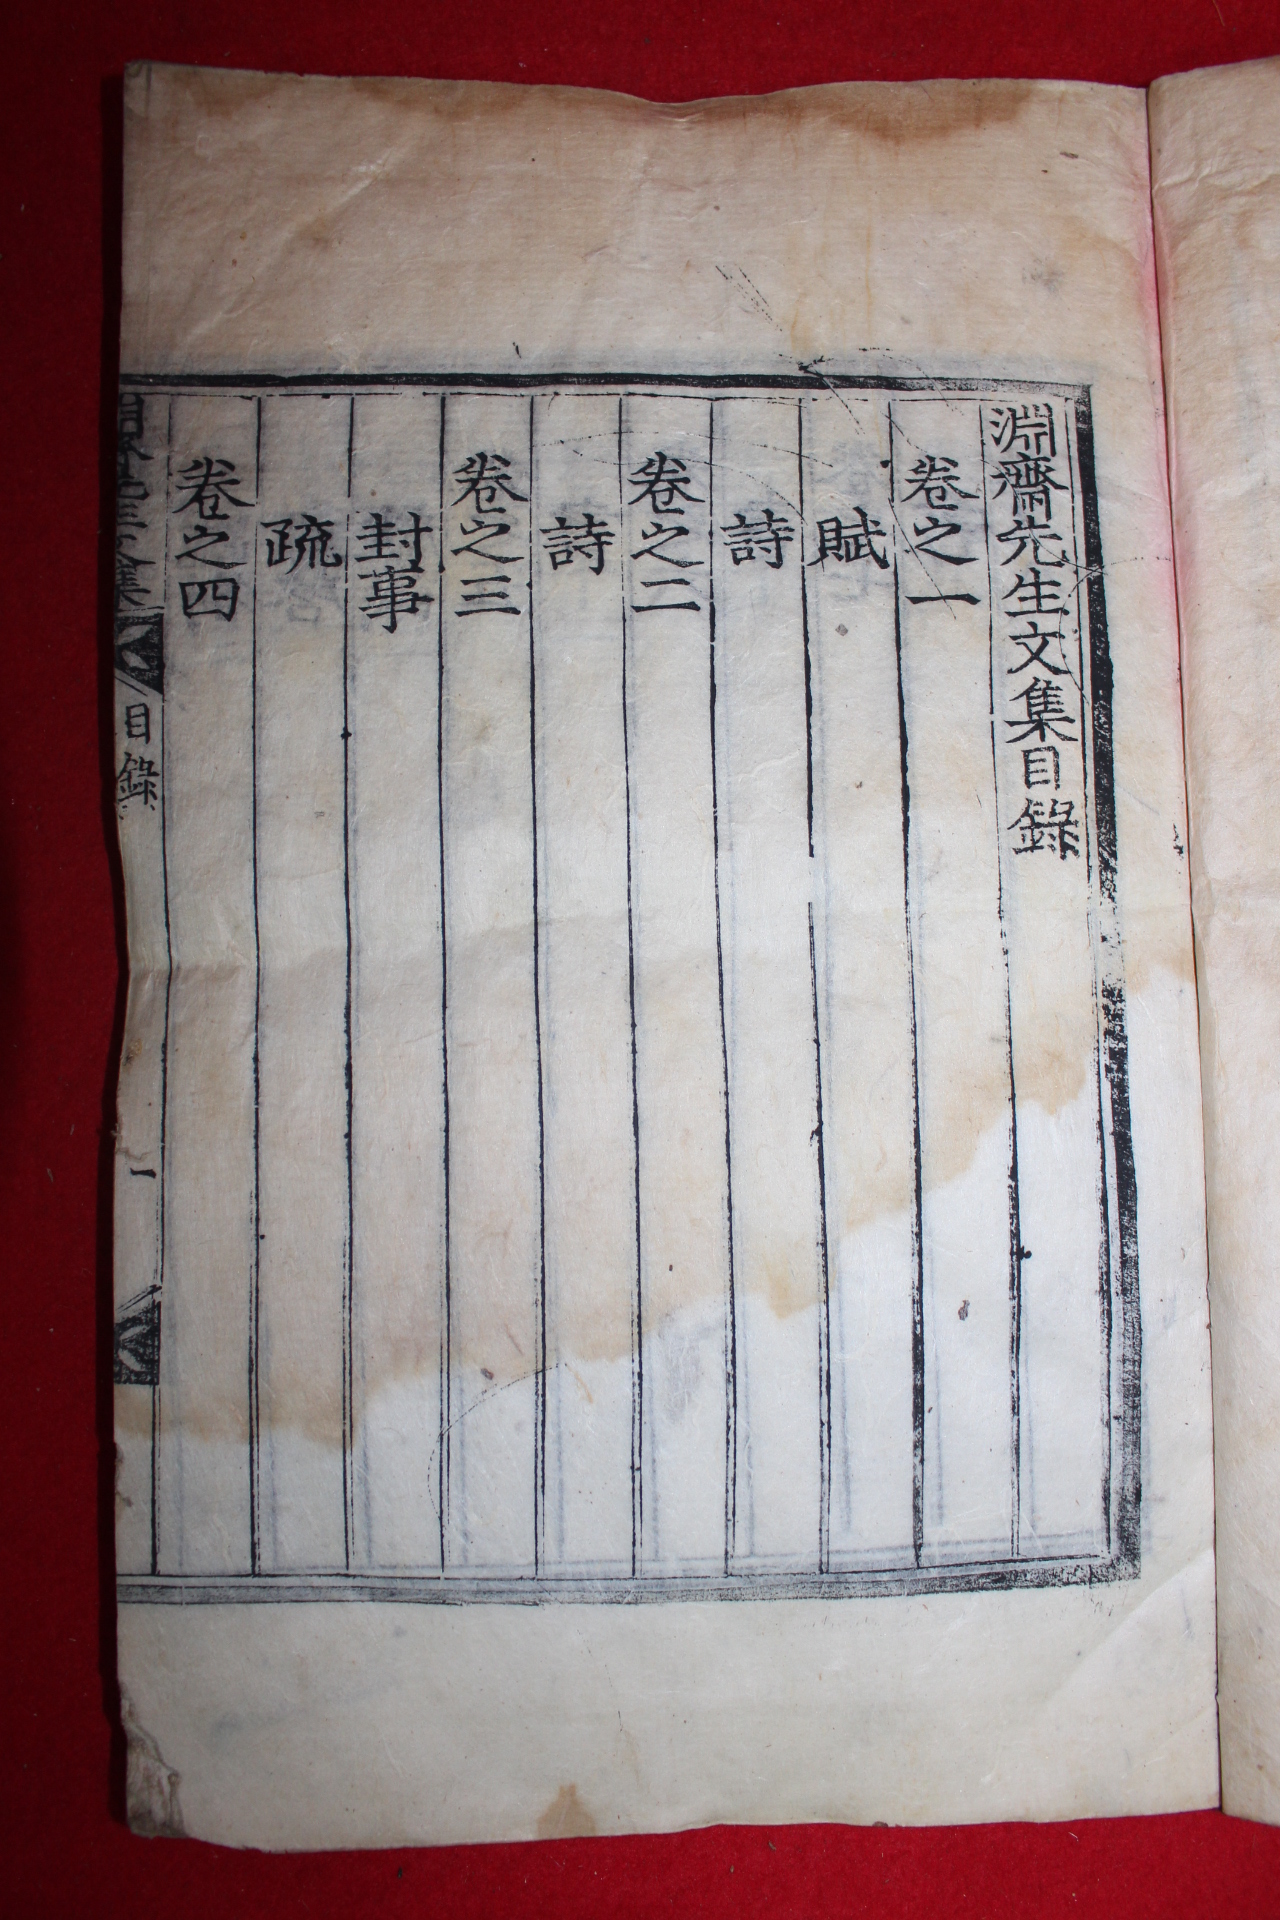 淵齋先生文集目錄
卷之一
賦
詩
卷之二
詩
卷之三
封事
疏
卷之四
目錄
一